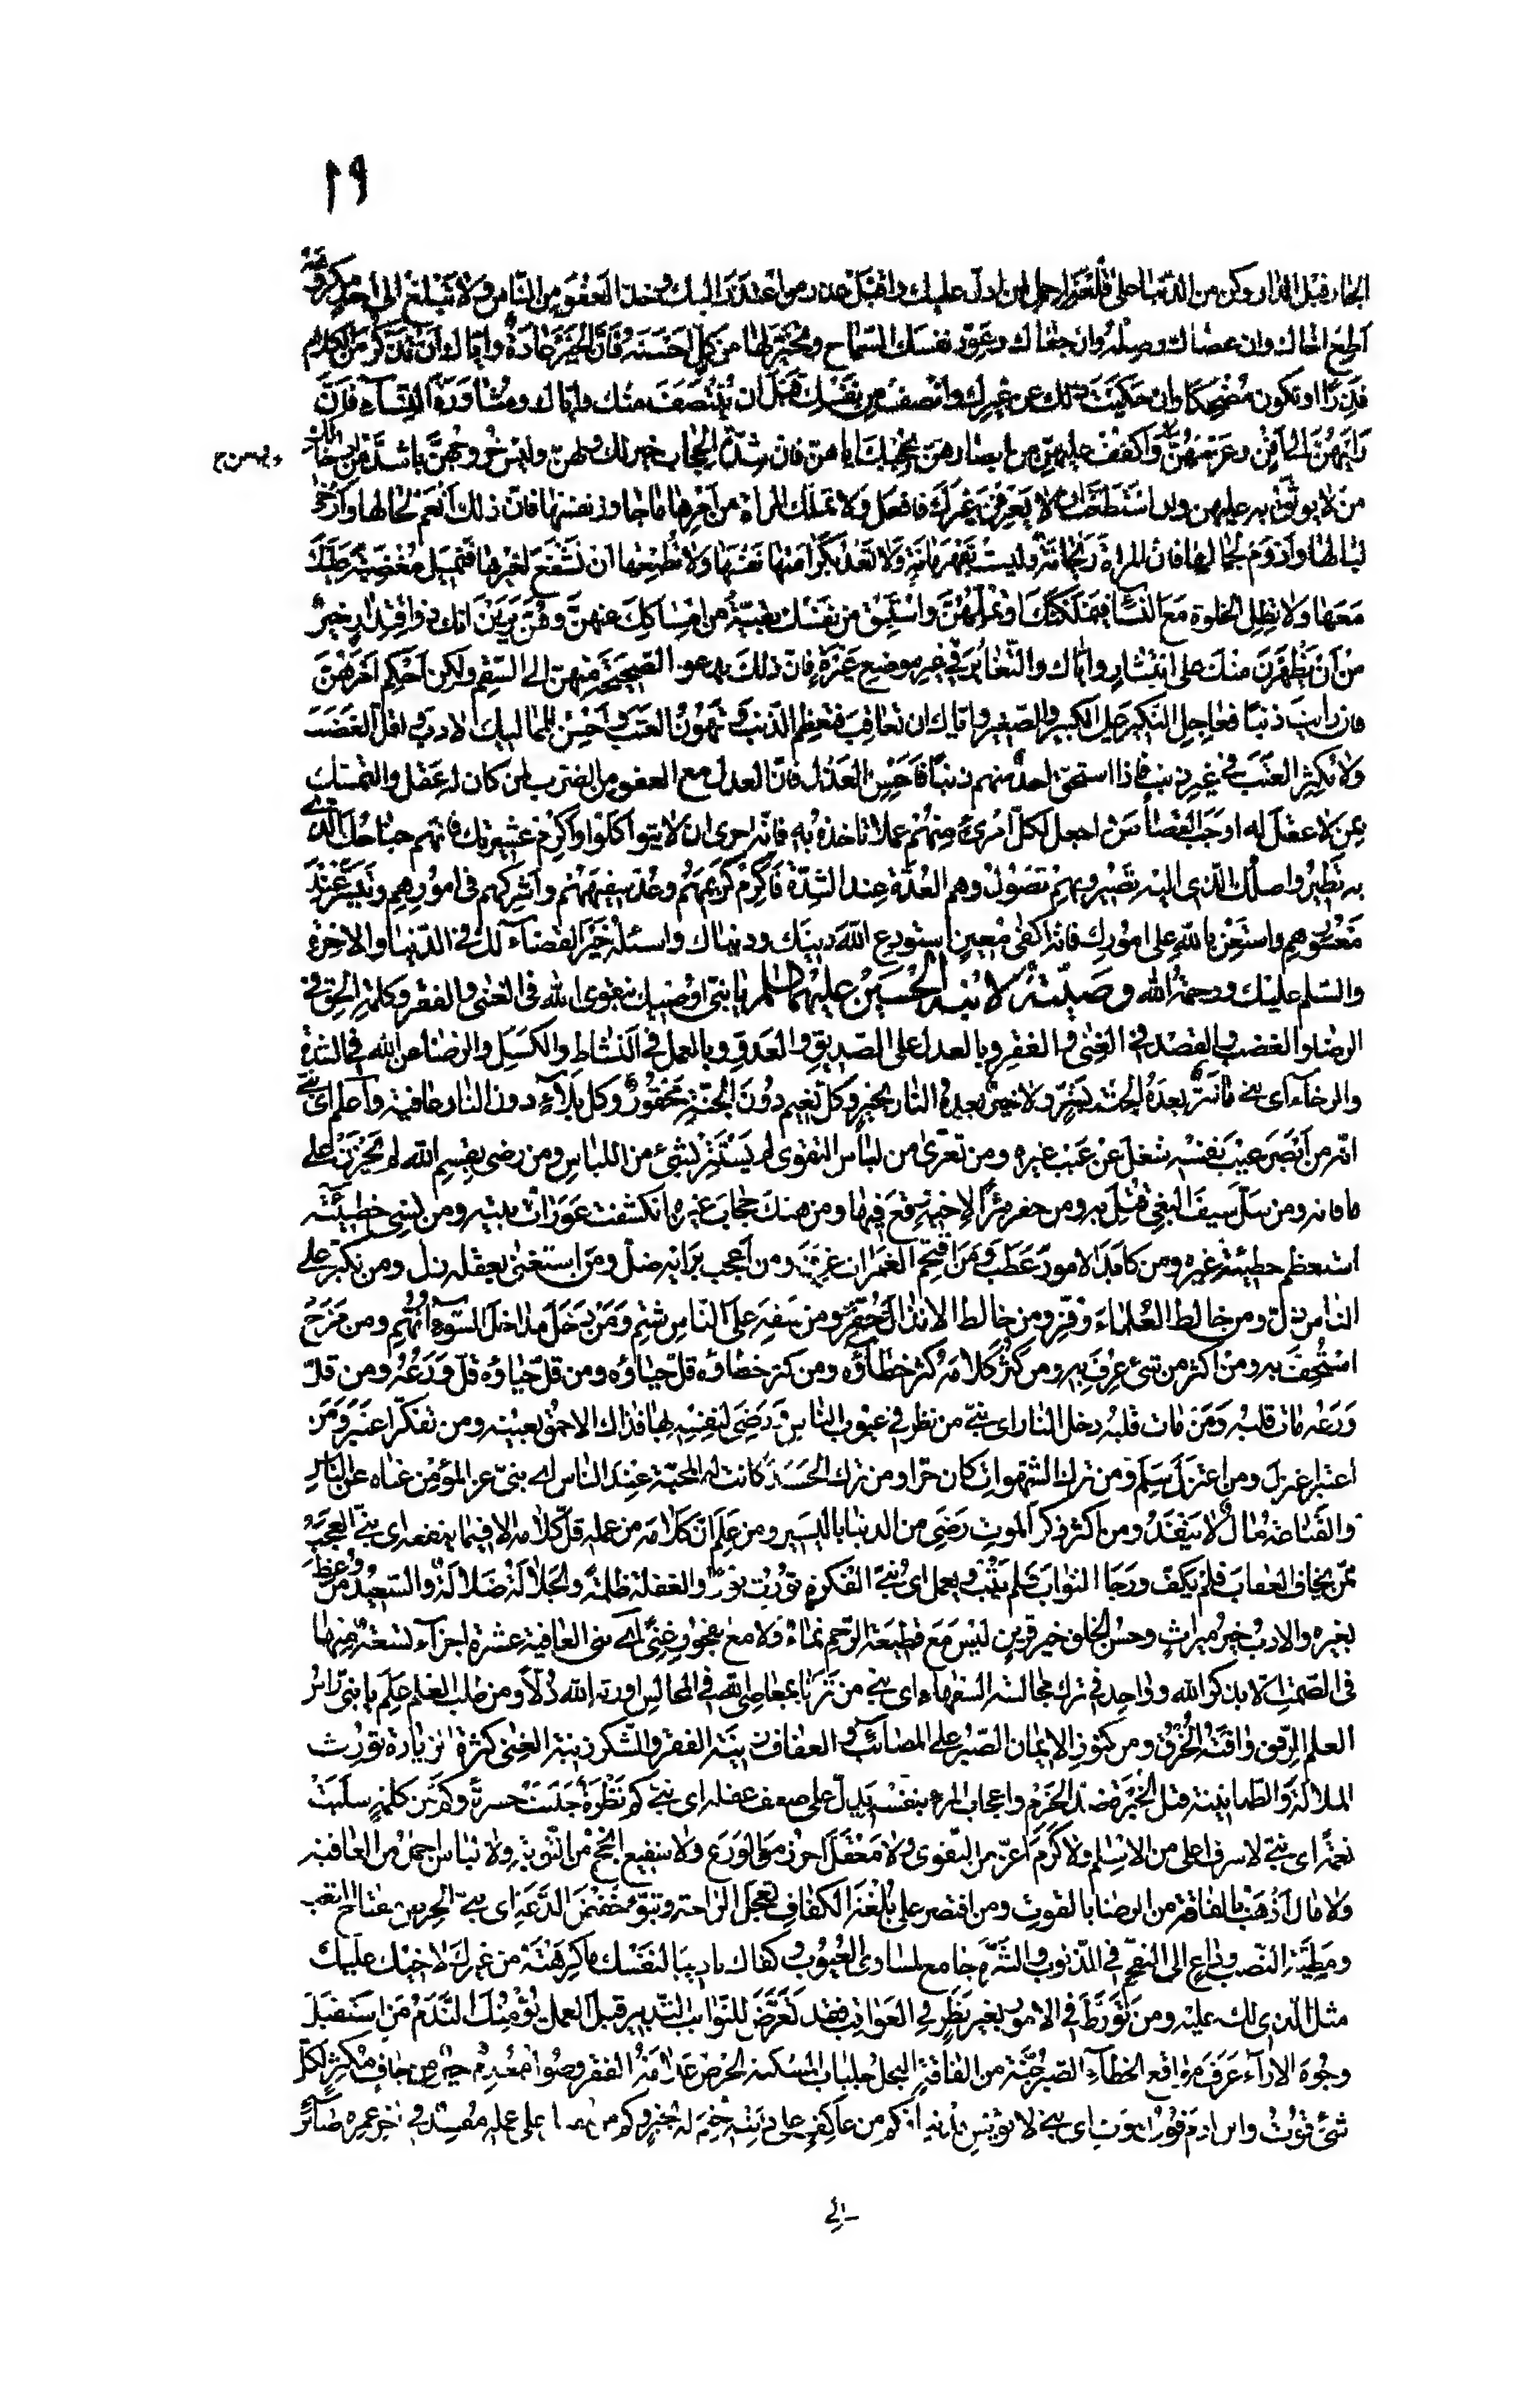 ٢٩
الجار قبل الدار وكن من الدنيا على قلعة ارحل لمن ادل عليك واقبل عذر من اعتذر اليك وخذ العفو من الناس ولا تبلغ الى احد مكروهه
اطع اخاك وان عصاك وصله وان جفاك وعوّد نفسك السماح وتخيّر لها من كل احسنه فان الخير عادة واياك ان تذكر من الكلام
قذرا او تكون مضحكا وان حكيت ذلك عن غيرك وانصف من نفسك قبل ان ينتصف منك واياك ومشاورة النساء فان
رايهن الى افن وعزمهن الى وهن واكفف عليهن من ابصارهن بحجابك اياهن فان شدة الحجاب خير لك ولهن وليس خروجهن باشد من ادخالك
من لا يوثق به عليهن وان استطعت ان لا يعرفن غيرك فافعل ولا تملك المراة من امرها ما جاوز نفسها فان ذلك انعم لحالها وارخى
لبالها وادوم لجمالها فان المراة ريحانة وليست بقهرمانة ولا تعد بكرامتها نفسها ولا تطمعها ان تشفع لغيرها فتميل مغضبة عليك
معها ولا تطل الخلوة مع النساء فيمللنك او تملهن واستبق من نفسك بقية من امساكك عنهن وهن يرين انك ذو اقتدار خير
من ان يظهرن منك على انتشار واياك والتغاير في غير موضع غيرة فان ذلك يدعو الصحيحة منهن الى السقم ولكن احكم امرهن
فان رايت ذنبا فعاجل النكير على الكبير والصغير واياك ان تعاقب فتعظم الذنب وتهون العتب واحسن للمماليك الادب واقل الغضب
ولا تكثر العتب في غير ذنب فاذا استحق احد منهم ذنبا فاحسن العدل فان العدل مع العفو من الضرب لمن كان له عقل والتمسك
بمن لا عقل له اوجب القصاص واجعل لكل امرئ منهم عملا تاخذه به فانه احرى ان لا يتواكلوا واكرم عشيرتك فانهم جناحك الذي
به تطير واصلك الذي اليه تصير وبهم تصول وهم العدة عند الشدة فاكرم كريمهم وعد سقيمهم واشركهم في امورهم وتيسر عند
معسورهم واستعن بالله على امورك فانه اكفى معين استودع الله دينك ودنياك واسئله خير القضاء لك في الدنيا والاخرة
والسلم عليك ورحمة الله وصيته لابنه الحسين عليهما السلم يا بني اوصيك بتقوى الله في الغنى والفقر وكلمة الحق في
الرضا والغضب والقصد في الغنى والفقر وبالعدل على الصديق والعدو وبالعمل في النشاط والكسل والرضا عن الله في الشدة
والرخاء اى بني ما شر بعده الجنة بشر ولا خير بعده النار بخير وكل نعيم دون الجنة محقور وكل بلاء دون النار عافية واعلم اى بني
انه من ابصر عيب نفسه شغل عن عيب غيره ومن تعرى من لباس التقوى لم يستتر بشئ من اللباس ومن رضى بقسم الله لم يحزن على
ما فاته ومن سل سيف البغي قتل به ومن حفر بئرا لاخيه وقع فيها ومن هتك حجاب غيره انكشفت عورات بيته ومن نسى خطيئته
استعظم خطيئة غيره ومن كابد الامور عطب ومن اقتحم الغمرات غرق ومن اعجب برايه ضل ومن استغنى بعقله زل ومن تكبر على
الناس ذل ومن خالط العلماء وقر ومن خالط الانذال حقر ومن سفه على الناس شتم ومن دخل مداخل السوء اتهم ومن مزح
استخف به ومن اكثر من شئ عرف به ومن كثر كلامه كثر خطاؤه ومن كثر خطاؤه قل حياؤه ومن قل حياؤه قل ورعه ومن قل
ورعه مات قلبه ومن مات قلبه دخل النار اى بني من نظر في عيوب الناس ورضى لنفسه بها فذاك الاحمق بعينه ومن تفكر اعتبر ومن
اعتبر اعتزل ومن اعتزل سلم ومن ترك الشهوات كان حرا ومن ترك الحسد كانت له المحبة عند الناس اى بني عز المؤمن غناه عن الناس
والقناعة مال لا ينفد ومن اكثر ذكر الموت رضى من الدنيا باليسير ومن علم ان كلامه من عمله قل كلامه الا فيما ينفعه اى بني العجب
ممن يخاف العقاب فلم يكف ورجا الثواب فلم يتب ويعمل اى بني الفكرة تورث نورا والغفلة ظلمة والجدالة ضلالة والسعيد من وعظ
بغيره والادب خير ميراث وحسن الخلق خير قرين ليس مع قطيعة الرحم نماء ولا مع فجور غنى اى بنى العافية عشرة اجزاء تسعة منها
في الصمت الا بذكر الله وواحد في ترك مجالسة السفهاء اى بني من تزيا بمعاصى الله في المجالس اورثه الله ذلا ومن طلب العلم علم يا بنى راس
العلم الرفق وافته الخرق ومن كنوز الايمان الصبر على المصائب والعفاف زينة الفقر والشكر زينة الغنى كثرة الزيارة تورث
الملالة والطمانينة قبل الخبرة ضد الحزم واعجاب المرء بنفسه يدل على ضعف عقله اى بني كم نظرة جلبت حسرة وكم من كلمة سلبت
نعمة اى بني لا شرف اعلى من الاسلم ولا كرم اعز من التقوى ولا معقل احرز من الورع ولا شفيع انجح من التوبة ولا لباس اجمل من العافية
ولا مال اذهب بالفاقة من الرضا بالقوت ومن اقتصر على بلغة الكفاف تعجل الراحة وتبوء خفض الدعة اى بني الحرص مفتاح التعب
ومطية النصب وداع الى التقحم في الذنوب والشره جامع لمساوى العيوب وكفاك تاديبا لنفسك ما كرهته من غيرك لاخيك عليك
مثل الذي لك عليه ومن تورط في الامور بغير نظر في العواقب فقد تعرض للنوائب التدبير قبل العمل يؤمنك الندم من استقبل
وجوه الاراء عرف مواقع الخطاء الصبر جنة من الفاقة البخل جلباب المسكنة الحرص علامة الفقر وصول معدم خير من جاف مكثر لكل
شئ قوت وابن ادم قوت الموت اى بني لا تؤيس مذنبا فكم من عاكف على ذنبه ختم له بخير وكم من مقبل على عمله مفسد في اخر عمره صائر
الى